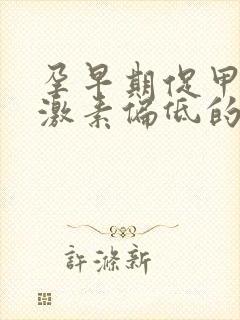 孕早期促甲
激素偏低的
許滌新